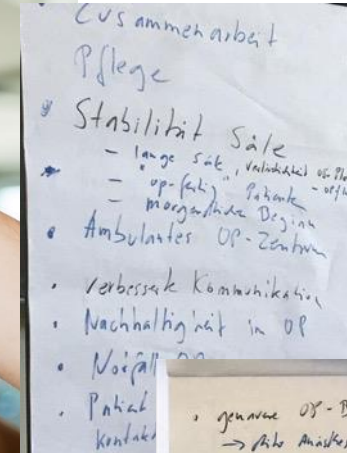 Zusammenarbeit
Pflege
• Stabilität Säle
- lange Säle
- "op-fertig" Patient
- morgendlicher Beginn
• Ambulantes OP-Zentrum
• verbesserte Kommunikation
• Nachhaltigkeit im OP
• Notfall
• Patient
kontakt
• genauere OP-